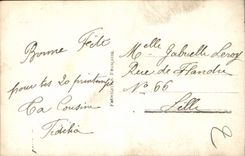 Bonne Fête
pour tes 20 printemps
Ta Cousine
Melle Gabrielle Leroy
Rue de Flandre
No 66
Lille